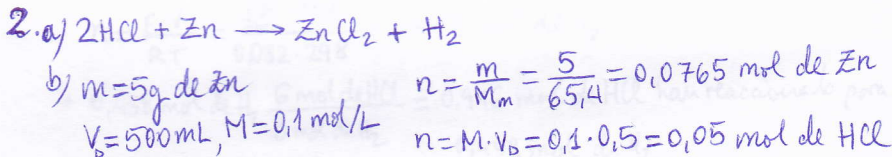 2.a) 2HCl + Zn ⟶ ZnCl₂ + H₂
b) m=5g de Zn n = m/Mm = 5/65,4 = 0,0765 mol de Zn
VD=500mL, M=0,1 mol/L n=M·VD=0,1·0,5=0,05 mol de HCl